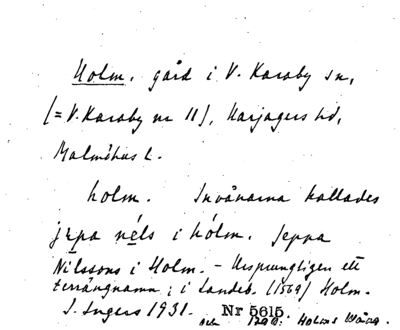 Holm, gård i V. Karaby sn,
(= V. Karaby nr 11), Harjagers hd,
Malmöhus l.
holm. Invånarna kallades
jepa néls i hólm. Jeppa
Nilssons i Holm. – Ursprungligen ett
terrängnamn; i Landeb. (1569) Holm.
I. Ingers 1931. Nr 5615.
och Holms Wång.